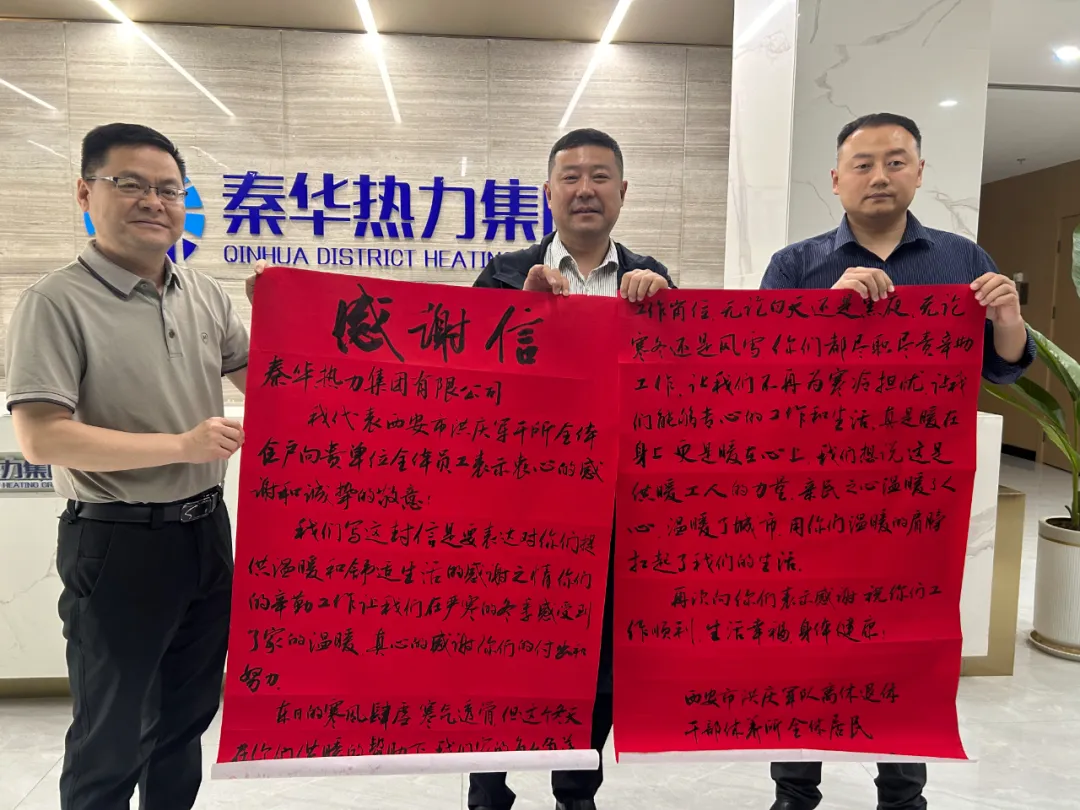 秦华热力集团
QINHUA DISTRICT HEATING
热力集团
HEATING GR
感谢信
秦华热力集团有限公司
我代表西安市洪庆军干所全体
住户向贵单位全体员工表示衷心的感
谢和诚挚的敬意！
我们写这封信是要表达对你们提
供温暖和舒适生活的感谢之情你们
的辛勤工作让我们在严寒的冬季感受到
了家的温暖 真心的感谢你们的付出和
努力.
冬日的寒风肆虐 寒气透骨 但这个冬天
在你们供暖的帮助下 我们
工作岗位 无论白天还是黑夜 无论
寒冬还是风雪 你们都尽职尽责辛勤
工作 让我们不再为寒冷担忧 让我
们能够专心的工作和生活 真是暖在
身上 更是暖在心上 我们想说这是
供暖工人的力量 亲民之心温暖了人
心 温暖了城市 用你们温暖的肩膀
扛起了我们的生活.
再次向你们表示感谢 祝你们工
作顺利 生活幸福 身体健康！
西安市洪庆军队离休退休
干部休养所全体居民